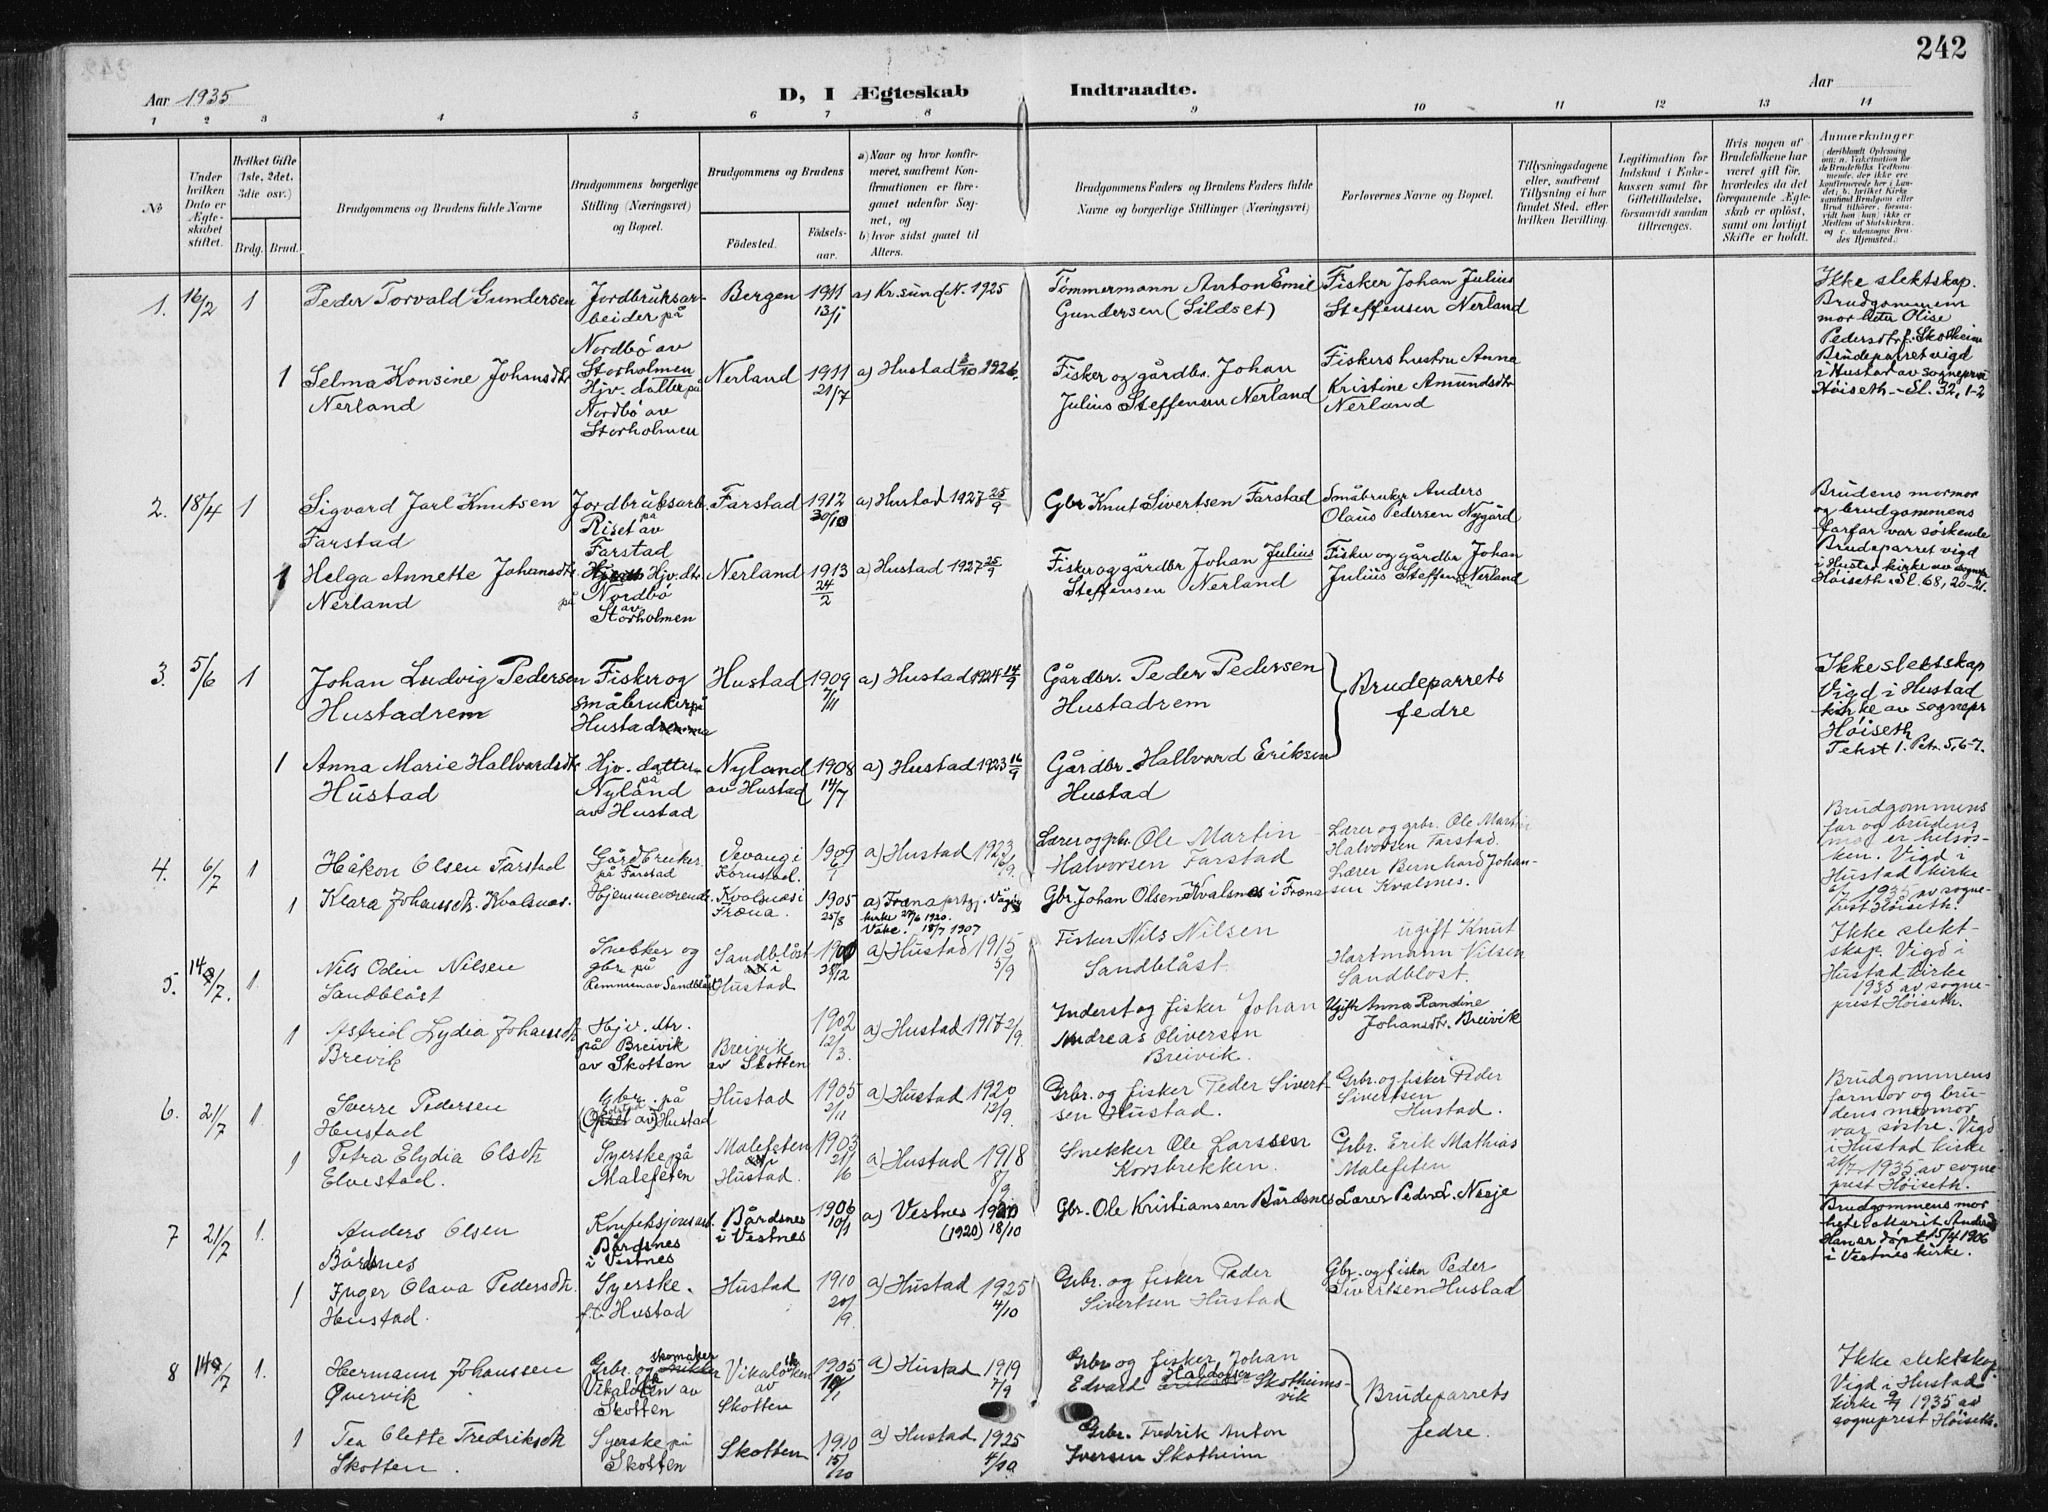 242
Aar 1935
D, I Ægteskab Indtraadte.
Aar
1 2 3 4 5 6 7 8 9 10 11 12 13 14
№
Under hvilken Dato er Ægteskabet stiftet.
Hvilket Gifte (1ste, 2det, 3die osv.)
Brdg. Brud.
Brudgommens og Brudens fulde Navne
Brudgommens borgerlige Stilling (Næringsvei) og Bopæl.
Brudgommens og Brudens
Fødested. Fødselsaar.
a) Naar og hvor konfirmeret, saafremt Konfirmationen er foregaaet udenfor Sognet, og
b) hvor sidst gaaet til Alters.
Brudgommens Faders og Brudens Faders fulde Navne og borgerlige Stillinger (Næringsvei)
Forlovernes Navne og Bopæl.
Tillysningsdagene eller, saafremt Tillysning ei har fundet Sted, efter hvilken Bevilling.
Legitimation for Indskud i Enkekassen samt for Giftetilladelse, forsaavidt saadan tiltrænges.
Hvis nogen af Brudefolkene har været gift før, hvorledes da det foregaaende Ægteskab er opløst, samt om lovligt Skifte er holdt.
Anmerkninger
1. 16/2 1 Peder Torvald Gundersen
Jordbruksarbeider på Nordbö av Storholmen
Bergen 1911 13/1
a) Kr.sund N. 1925
Tömmermann Anton Emil Gundersen (Sildset)
Fisker Johan Julius Steffensen Nerland
Ikke slektskap.
Brudgommem
mor heter Olise
Pedersdtr f. Skotheim
Brudeparret vigd
i Hustad av sognepr
Höiseth - Sl. 32, 1-2
1 Selma Konsine Johansdtr Nerland
Hjv. datter på Nordbö av Storholmen
Nerland 1911 21/7
a) Hustad 3/10 1926.
Fisker og gårdbr. Johan Julius Steffensen Nerland
Fiskers hustru Anna Kristine Amundsdtr Nerland
2. 18/4 1 Sigvard Jarl Knutsen Farstad
Jordbruksarb. på Riset av Farstad
Farstad 1912 30/10
a) Hustad 1927 25/9
Gbr Knut Sivertsen Farstad
Småbruker Anders Olaus Pedersen Nygård
Brudens mormor
og brudgommens
farfar var söskende
Brudeparret vigd
i Hustad kirke av sognepr
Höiseth. Sl. 68, 20-21.
1 Helga Annette Johansdtr Nerland
Hjv. dtr. på Nordbö av Storholmen
Nerland 1913 24/2
a) Hustad 1927 25/9
Fisker og gårdbr Johan Julius Steffensen Nerland
Fisker og gårdbr Johan Julius Steffensen Nerland
3. 5/6 1 Johan Ludvig Pedersen Hustadrem
Fisker og småbruker på Hustad
Hustad 1909 7/11
a) Hustad 1924 14/9
Gårdbr. Peder Pedersen Hustadrem
Brudeparrets fedre
Ikke slektskap
Vigd i Hustad
kirke av sognepr
Höiseth
Tekst 1. Petr. 5, 6-7.
1 Anna Marie Hallvardsdtr Hustad
Hjv. datter på Nyland av Hustad
Nyland av Hustad 1908 14/7
a) Hustad 1923 16/9
Gårdbr. Hallvard Eriksen Hustad
4. 6/7 1 Håkon Olsen Farstad
Gårdbruker på Farstad
Vevang i Kornstad. 1909
a) Hustad 1923
Lærer og gbr. Ole Martin Halvorsen Farstad
Lærer og grbr. Ole Martin Halvorsen Farstad.
Brudgommens
far og brudens
mor er helsös-
ken. Vigd i
Hustad kirke
6/7 1935 av sogne-
prest Höiseth.
1 Klara Johansdtr. Kvalsnes.
Hjemmeværende
Kvalsnes i Fræna. 1905 25/8
a) Fræna prstgj. Vågöy kirke 27/6 1920.
Vakc. 18/7 1907
Gbr. Johan Olsen Kvalsnes i Fræna
Lærer Bernhard Johansen Kvalsnes.
5. 14/7. 1 Nils Odin Nilsen Sandblåst
Snekker og gbr. på Remmen av Sandblåst
Sandblåst i Hustad 28/12
a) Hustad 1915 5/9
Fisker Nils Nilsen Sandblåst.
ugift Knut Hartmann Nilsen Sandblåst.
Ikke slekt-
skap. Vigd i
Hustad kirke
1935 av sogne-
prest Höiseth.
1 Astrid Lydia Johansdtr Breivik
Hjv. dtr. på Breivik av Skotten
Breivik av Skotten 1902 12/3.
a) Hustad 1917 2/9.
Inderst og fisker Johan Andreas Oliversen Breivik.
Ugift Anna Randine Johansdtr. Breivik
6. 21/7 1 Sverre Pedersen Hustad
Gbr. på av Hustad
Hustad 1905 2/11
a) Hustad 1920 12/9.
Grbr. og fisker Peder Sivertsen Hustad.
Grbr. og fisker Peder Sivertsen Hustad.
Brudgommens
farmor og bru-
dens mormor
var söstre. Vigd
i Hustad kirke
21/7 1935 av sogne
prest Höiseth.
1 Petra Elydia Olsdtr Elvestad.
Syerske på Malefeten
Malefeten i Hustad. 1903 21/6
a) Hustad 1918 8/9
Snekker Ole Larssen Korsbrekken.
Grbr. Erik Mathias Malefeten
7 21/7 1. Anders Olsen Bårdsnes
Konfeksjonsarb. Bårdsnes i Vestnes
Bårdsnes i Vestnes 1906 10/1
a) Vestnes (1920) 18/10
Gbr. Ole Kristiansen Bårdsnes
Lærer Peder L. Nesje
Brudgommens mor
heter Marit Andersd
Han er döpt 15/4 1906
i Vestnes kirke.
1 Inger Olava Pedersdtr. Hustad.
Syerske. Hustad
Hustad 1910 20/9.
a) Hustad 1925 4/10
Grbr. og fisker Peder Sivertsen Hustad
Gbr. og fisker Peder Sivertsen Hustad
8 14/7 1. Hermann Johanssen Övervik
Grbr. og skomaker på Vikalöken av Skotten
Vikalöken av Skotten 1905
a) Hustad 1919 7/9
Grbr. og fisker Johan Edvard Haldorsen Skotheimsvik
Brudeparrets fedre.
Ikke slektskap
Vigd i Hustad
kirke 1935 av
sogneprest Höiseth.
1 Tea Olette Fredriksdtr Skotten.
Syerske på Skotten
Skotten 1910 15/10
a) Hustad 1925 4/10
Grbr. Fredrik Anton Iversen Skotheim